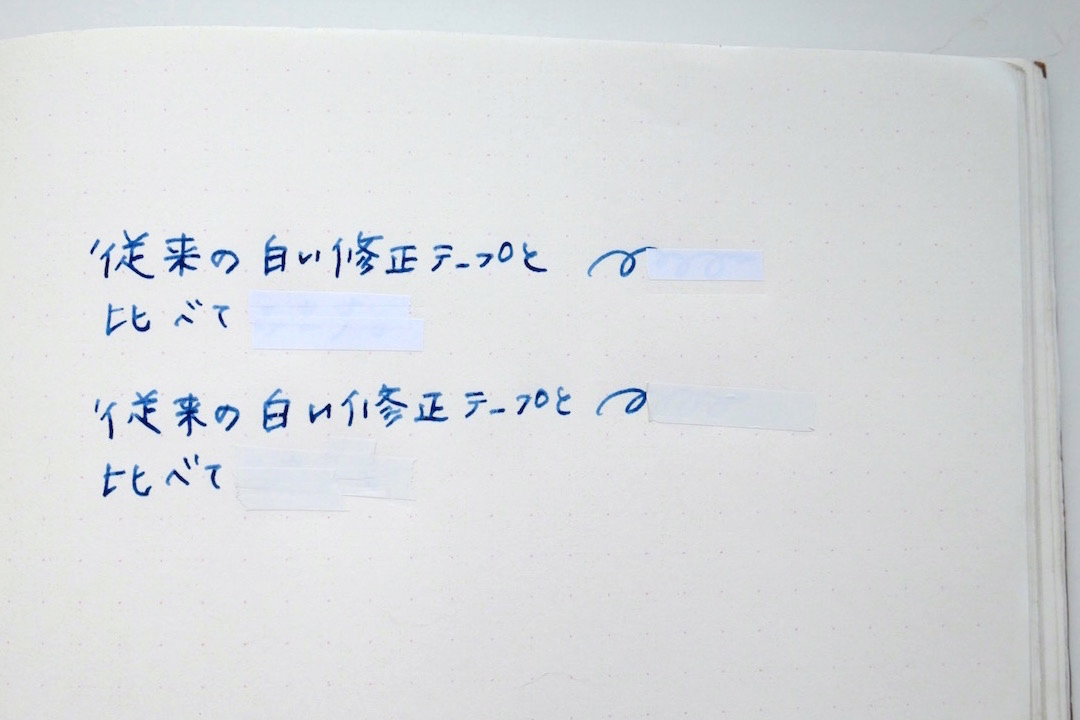 従来の白い修正テープと
比べて
従来の白い修正テープと
比べて